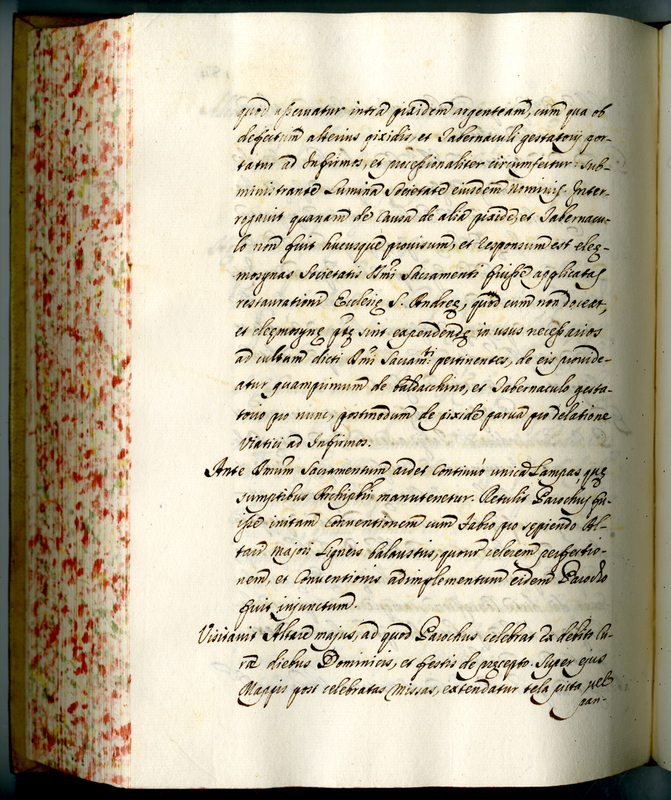 quod asservatur intra pixidem argenteam, cum qua ob
defectum alterius pixidis, et Tabernaculi gestatorij por-
tatur ad Infirmos, et processionaliter circumfertur: sub-
ministrante Lumina Societate eiusdem nominis. Inter-
rogavit quanam de Causa de alia pixide, et Tabernacu-
lo non fuit hucusque provisum, et responsum est eleę-
mosynas Societatis Ssmi Sacramenti fuisse applicatas
restaurationi Ecclesię S. Andreę, quod cum non doceat,
et eleęmosynę sint expendendę in usus necessarios
ad cultum dicti Ssmi Sacram.ti pertinentes, de eis provide-
atur quamprimum de baldacchino, et Tabernaculo gesta-
torio pro nunc, postmodum de pixide parva pro delatione
Viatici ad Infirmos.
Ante Ssmum Sacramentum ardet Continuò unica Lampas, quę
sumptibus Archipbri manutenetur. Retulit Parochus fu-
isse initam Conventionem cum Fabro pro sepiendo Al-
tari Majori Ligneis balaustris, quorum celerem perfectio-
nem, et Conventionis adimplementum eidem Parocho
fuit injunctum.
Visitavit Altare majus, ad quod Parochus celebrat ex debito Cu-
rę diebus Dominicis, et festis de pręcepto. Super ejus
Mappis post celebratas Missas, extendatur tela picta, vel
pan-